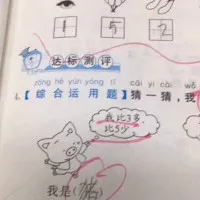 1 5 2
达标测评
zōng hé yùn yòng tí cāi yi cāi wǒ
4.【综合运用题】猜一猜,我
我比3多
比5少
我是(猪)